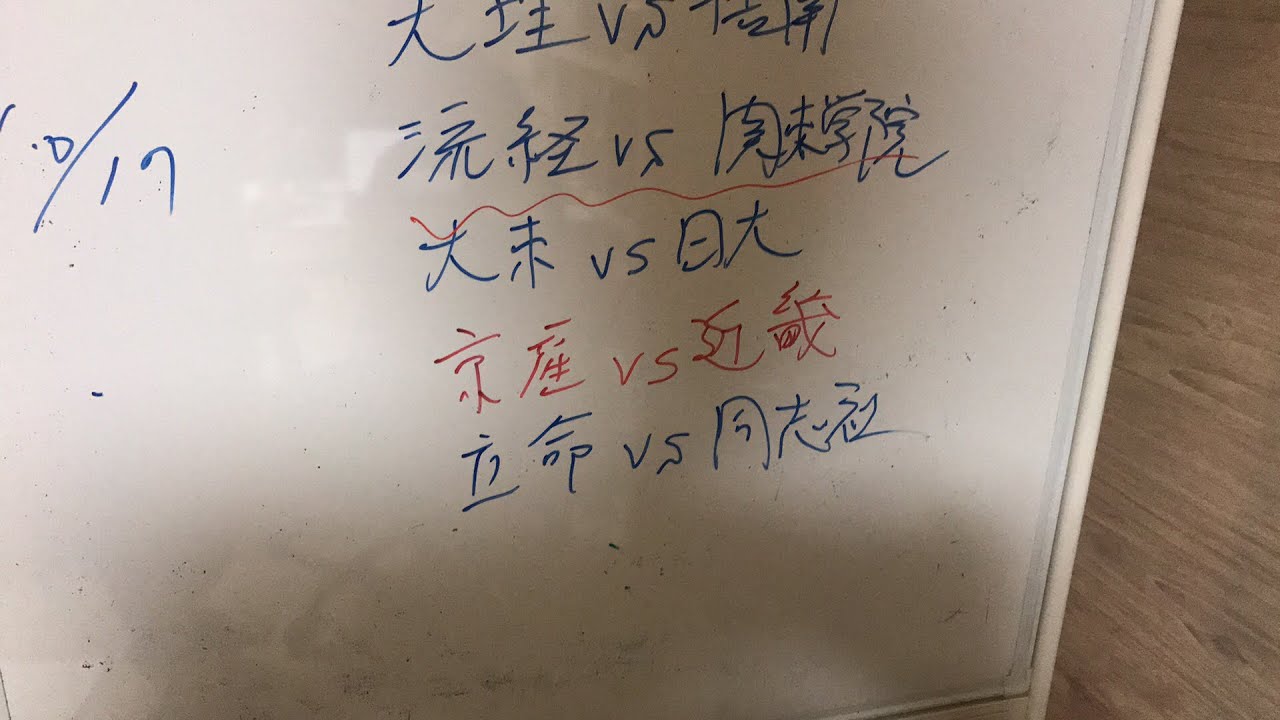 10/19
流経 vs 関東学院
大東 vs 日大
京産 vs 近畿
立命 vs 同志社